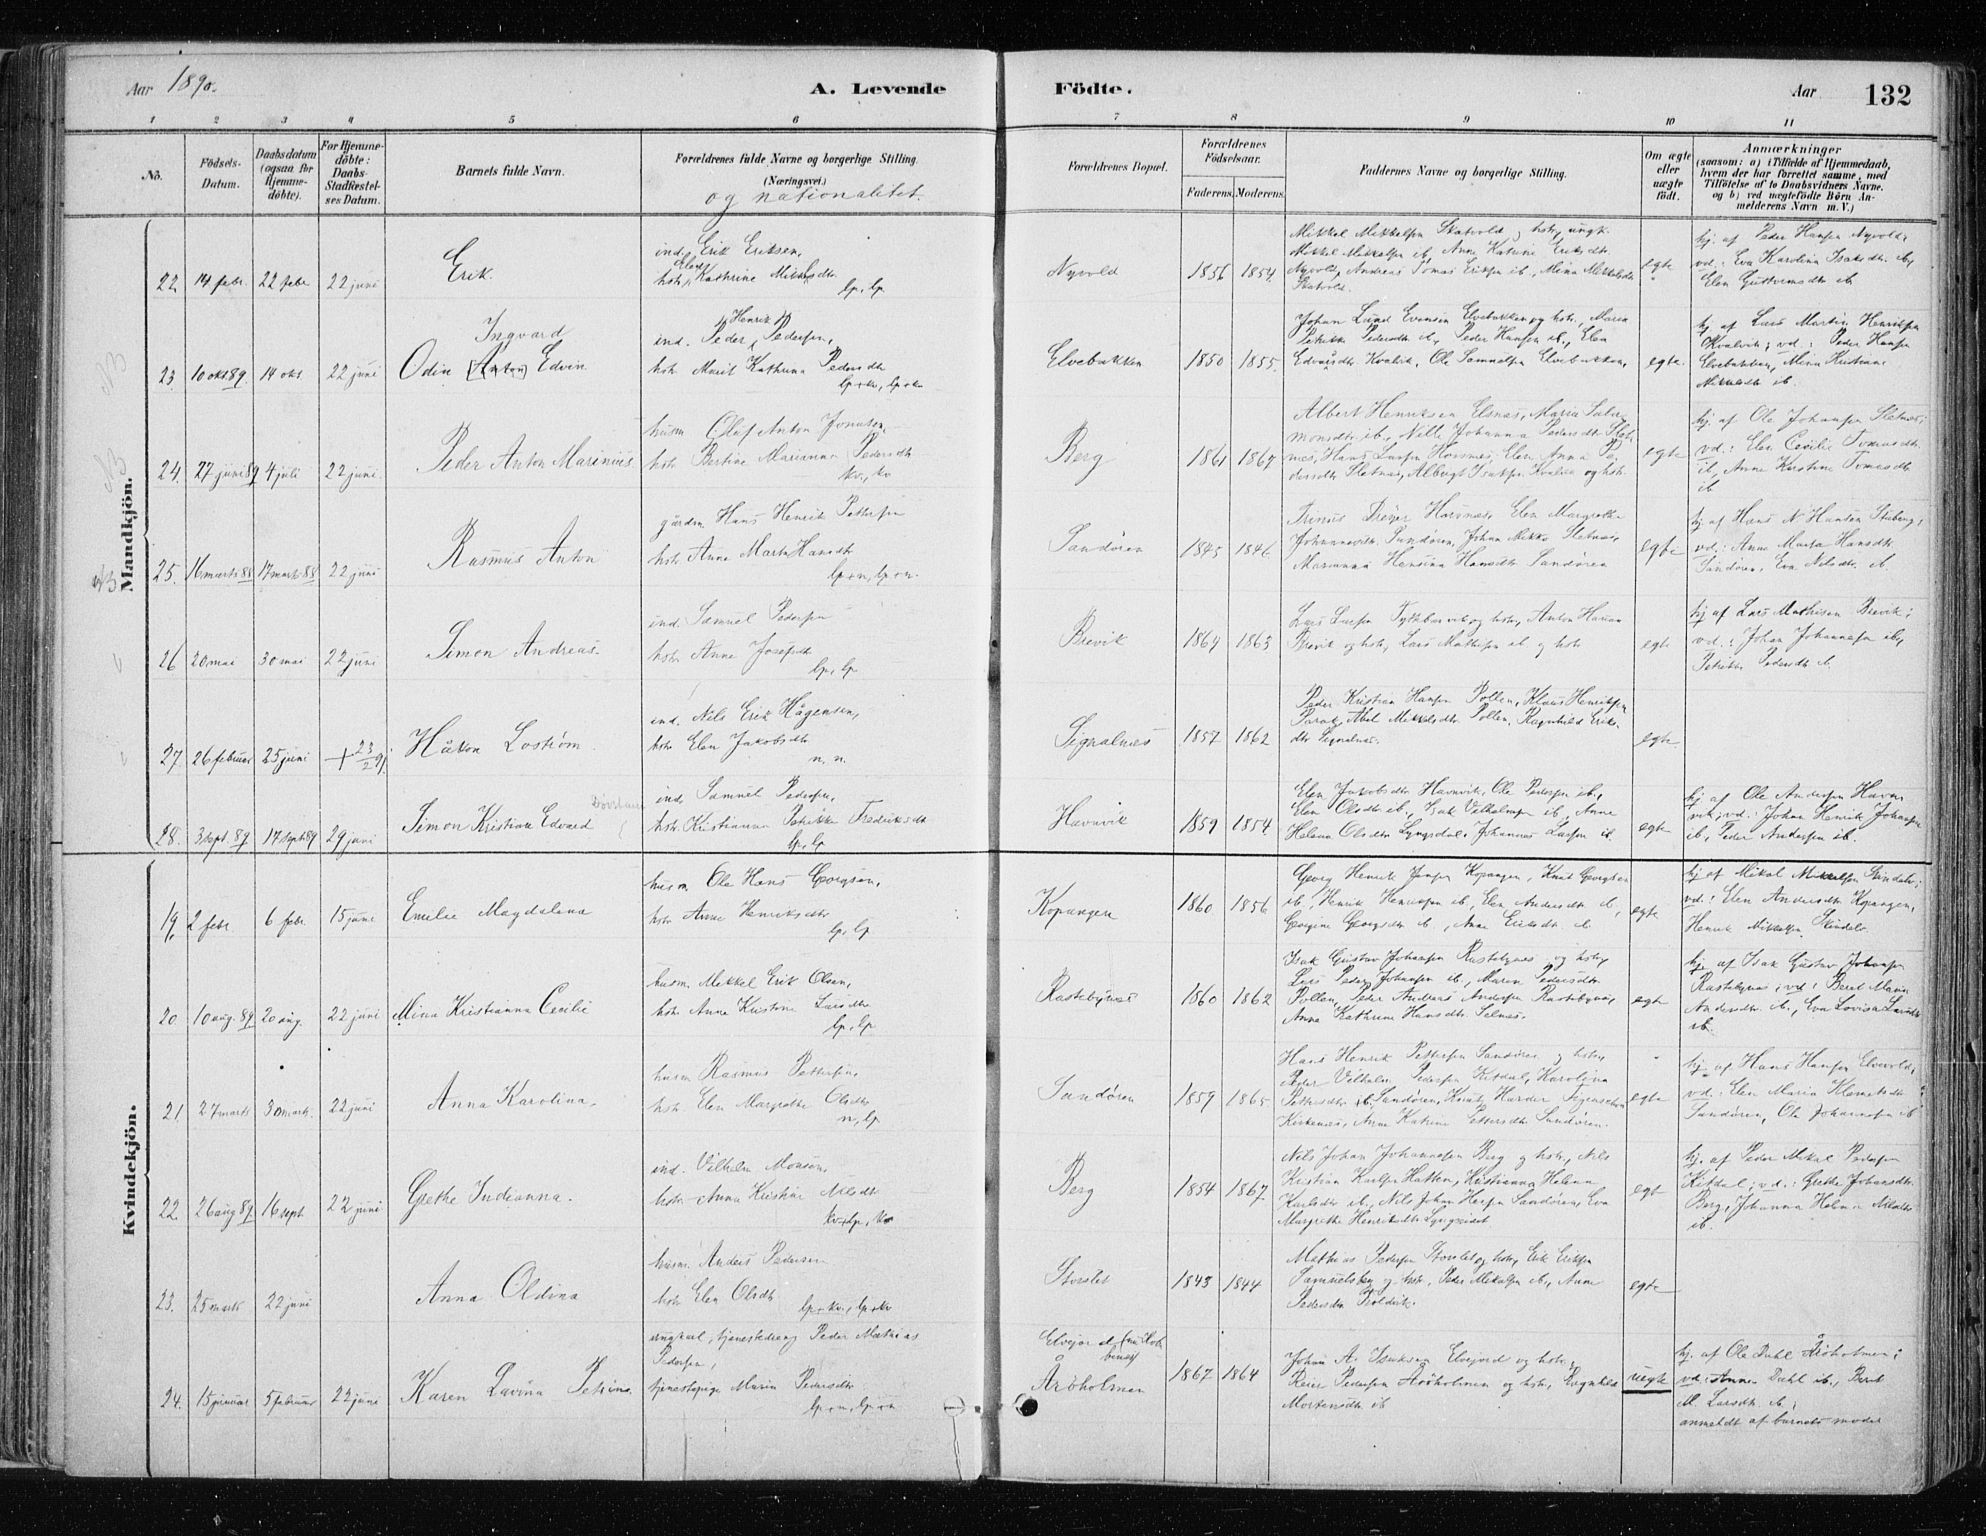 Aar 1890.
A. Levende Födte.
Aar 132
1 2 3 4 5 6 7 8 9 10 11
No.
Födsels-Datum.
Daabsdatum (ogsaa for Hjemmedöbte).
For Hjemmedöbte: Daabs-Stadfæstelses Datum.
Barnets fulde Navn.
Forældrenes fulde Navne og borgerlige Stilling.
(Næringsvei.)
og nationalitet.
Forældrenes Bopæl.
Forældrenes Födselsaar.
Faderens. Moderens.
Faddernes Navne og borgerlige Stilling.
Om ægte eller uægte födt.
Anmærkninger
(saasom: a) i Tilfælde af Hjemmedaab, hvem der har forrettet samme, med Tilföielse af to Daabsvidners Navne, og b) ved uægtefödte Börn Anmelderens Navn m. V.)
Mandkjön.
22. 14 febr. 22 febr 22 juni
Erik
ind. Erik Eriksen,
hstr. Elen Kathrine Mikkelsdtr
lp, lp
Nyvold 1856 1854
Mikkel Mikkelsen Skatvold og hstr, ungk.
Mikkel Mikkelsen ib, Anne Katrine Eriksdtr
Nyvold, Andreas Tomas Eriksen ib, Mina Mikkelsdtr
Skatvold.
egte
hj. af Peder Hansen Nyvold;
vd.: Eva Karolina Isaksdtr ib,
Elen Guttormsdtr ib
23. 10 okt 89 14 okt 22 juni
Ingvard
Odin [Anton] Edvin
ind. Peder Henrik Pedersen,
hstr Marit Kathrina Pedersdtr
lp+kv, lp+kv
Elvebakken 1850 1855.
Johan Lund Evensen Elvebakken og hstr, Maria
Petrikke Pedersdtr ib, Peder Hansen ib, Elen
Edvardsdtr Kvalvik, Ole Samuelsen Elvebakken,
egte
hj. af Lars Martin Henriksen
Kvalvik; vd.: Peder Hansen
Elvebakken, Mina Kristiane
Mikkelsdtr ib.
24. 27 juni 89 4 juli 22 juni
Peder Anton Marinius
husm Olaf Anton Jonasen,
hstr Bertine Marianna Pedersdtr
kv, kv
Berg 1861 1867
Albert Henriksen Elsnæs, Maria Salo-
monsdtr ib, Nille Johanna Pedersdtr Slet-
næs, Hans Larsen Horsnæs, Elen Anna Pe-
dersdtr Sletnæs, Albrigt Isaksen Kvalvik og hstr
egte
hj. af Ole Johansen Sletnæs;
vd.: Elen Cecilie Tomasdtr
ib, Anne Kirstine Tomasdtr
ib
25. 16 marts 88 17 marts 88 22 juni
Rasmus Anton
gårdm Hans Henrik Pettersen
hstr Anne Marta Hansdtr
lp+n, lp+n.
Sandøren 1845 1846
Trinius Dreyer Horsnæs, Elen Margrethe
Johannesdtr Sandøren, Johan Mikko Sletnæs,
Marianna Hensina Hansdtr Sandøren
egte
hj. af Hans N. Hansen Stuberg;
vd.: Anne Marta Hansdtr
Sandøren, Eva Nilsdtr ib.
26 20 mai 30 mai 22 juni
Simon Andreas
ind. Samuel Pedersen
hstr Anne Josefsdtr
lp, lp
Brevik 1864 1863
Lars Larsen Tyttebærvik og hstr, Anton Hansen
Brevik og hstr, Lars Mathisen ib og hstr
egte
hj af Lars Mathisen Brevik;
vd.: Johan Johannesen ib,
Petrikke Pedersdtr ib.
27. 26 februar 25 juni + 23/2 91.
Håkon Lostrøm
ind. Nils Erik Hågensen,
hstr Elen Jakobsdtr
n, n.
Signalnæs 1857 1862
Peder Kristian Hansen Pollen, Klaus Henriksen
Paras, Abel Mikkelsdtr Pollen, Ragnhild Eriks-
dtr Signalnæs.
egte
28. 3 sept. 89 17 sept 89 29 juni
Simon Kristian Edvard
ind. Samuel Pedersen,
hstr. Kristianna Petrikke Fredriksdtr
lp, lp
Havnvik 1859 1854
Elen Jakobsdtr Havnvik, Ole Pedersen ib,
Elen Olsdtr ib, Isak Vilhelmsen ib, Anne
Helena Olsdtr Lyngsdal, Johannes Larsen ib.
egte
hj af Ole Andersen Havn-
vik; vd.: Johan Henrik Johansen
ib, Peder Andersen ib.
Kvindekjön.
19. 2 febr 6 febr. 15 juni
Emilie Magdalena
husm Ole Hans Georgsen,
hstr Anne Henriksdtr
lp, lp
Kopangen 1860 1856
Georg Henrik Jensen Kopangen, Knut Georgsen
ib, Henrik Henriksen ib, Elen Andersdtr ib,
Georgine Georgsdtr ib, Anne Eriksdtr ib
egte
hj af Mikal Mikkelsen Skindalv;
vd.: Elen Andersdtr Kopangen,
Henrik Mikkelsen Skindalv.
20. 10 aug. 89 20 aug. 22 juni
Mina Kristianna Cecilie
husm Mikkel Erik Olsen,
hstr Anne Kristine Larsdtr
lp, lp
Rastebynæs 1860 1862
Isak Gustav Johansen Rastebynæs og hstr,
Lars Peder Johansen ib, Maren Pedersdtr
Pollen, Peder Andreas Andersen Rastebynæs,
Anna Kathrine Hansdtr Selnæs.
egte
hj. af Isak Gustav Johansen
Rastebynæs; vd: Beret Maria
Andersdtr ib., Eva Lovisa Larsdtr
ib.
21. 27 marts 30 mark. 22 juni
Anna Karolina
husm Rasmus Pettersen,
hstr Elen Margrethe Olsdtr
n, lp
Sandøren 1859 1865
Hans Henrik Pettersen Sandøren og hstr,
Peder Vilhelm Pedersen Kitdal, Karolina
Pettersdtr Sandøren, Knut Harder Figenschou
Kirkenæs, Anne Katrine Pettersdtr Sandøren.
egte
hj. af Hans Hansen Elvevold;
vd.: Elen Maria Klemetsdtr
Sandøren, Ole Johannesen ib
22. 26 aug 89 16 sept. 22 juni
Grethe Indianna.
ind. Vilhelm Monsen,
hstr Anna Kristine Nilsdtr
kv+lp, kv
Berg 1854 1867
Nils Johan Johannesen Berg og hstr, Nils
Kristian Karlsen Hatten, Kristianna Helena
Karlsdtr ib, Nils Johan Hansen Sandøren, Eva
Margrethe Henriksdtr Lyngseidet.
egte
hj. af Peder Mikal Pedersen
Kitdal; vd.: Grethe Johansdtr
Berg, Johanna Helena Nilsdtr
ib.
23. 25 marts 22 juni
Anna Oldina
husm. Anders Pedersen
hstr Elen Olsdtr
lp+kv., lp+kv
Storslet 1843 1844
Mathias Pedersen Storslet og hstr, Erik Eriksen
Samuelsberg og hstr, Peder Mikalsen ib, Anne
Pedersdtr
egte
24. 15 januar 5 februar 22 juni
Karen Lavina Petrine
ungkarl, tjenestedreng Peder Mathias
Pedersen,
tjenestepige Maria Pedersdtr
lp+n, lp+n
Elvejord
Årøholmen
1867 1864
Johan A. Isaksen Elvejord og hstr,
Reier Pedersen Årøholmen og hstr, Ragnhild
Mortensdtr ib
uegte
hj. af Ole Dahl Årøholmen;
vd: Anne Dahl ib., Beret
M. Larsdtr ib.;
anmeldt af barnets moder